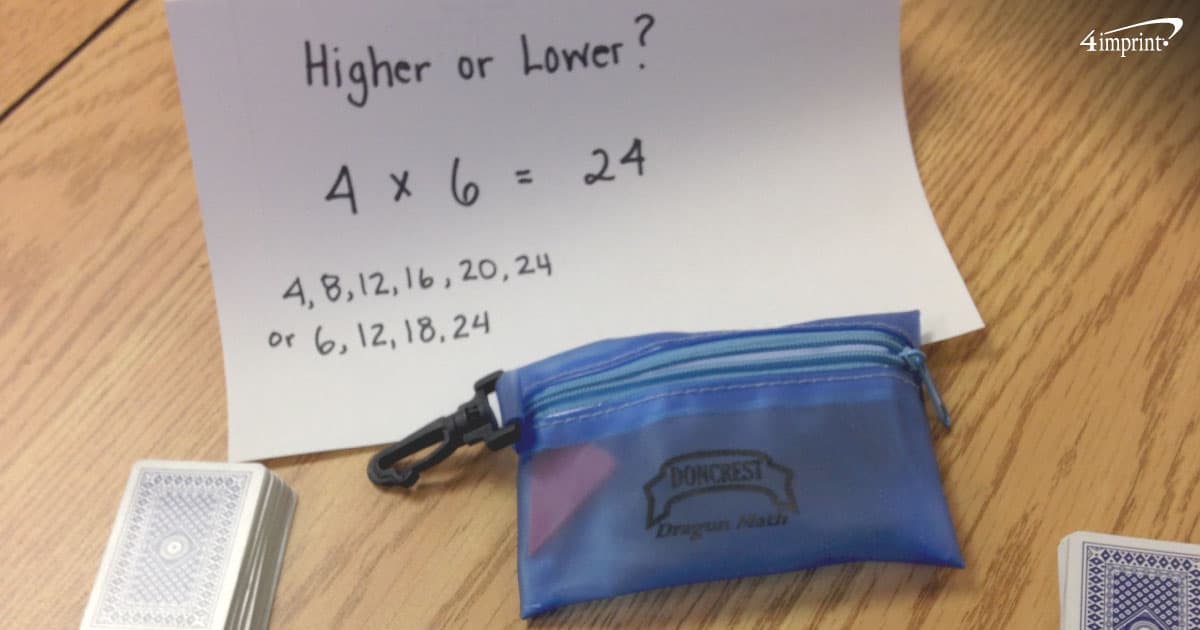 4imprint
Higher or Lower?
4 x 6 = 24
4, 8, 12, 16, 20, 24
or 6, 12, 18, 24
DONCREST
Dragon Math